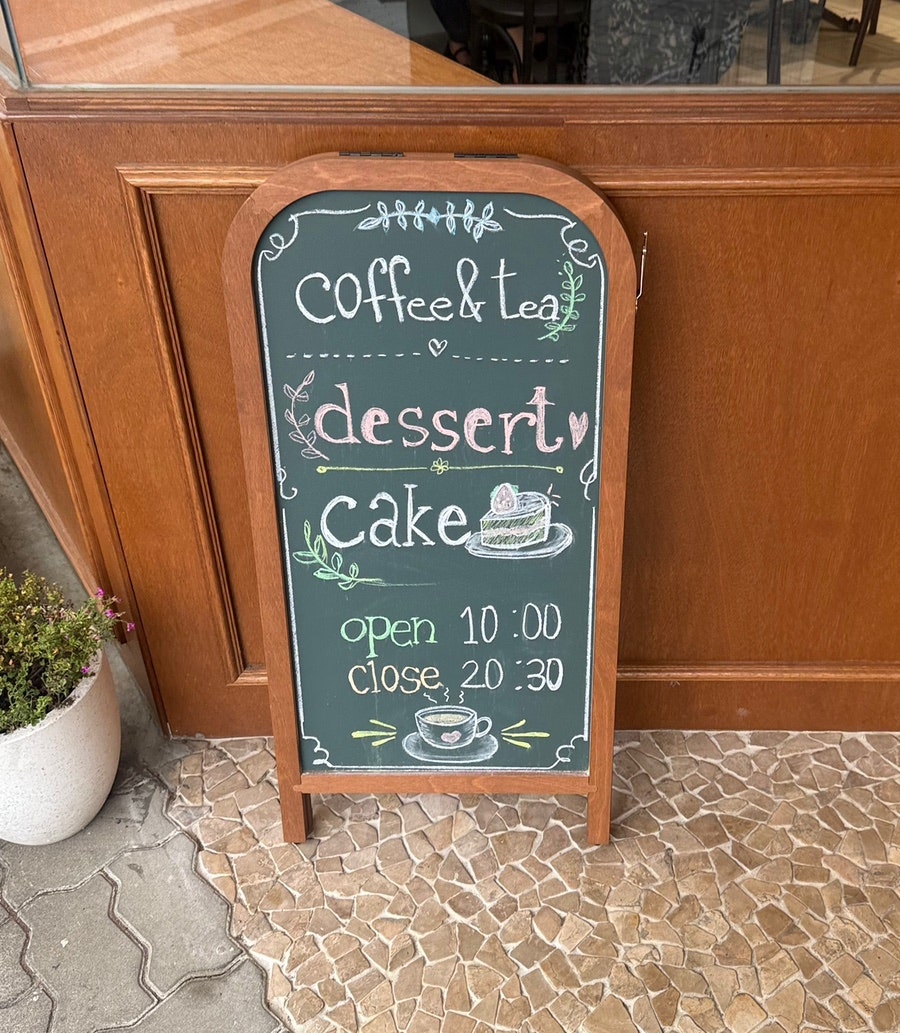 coffee & tea
dessert
cake
open 10:00
close 20:30